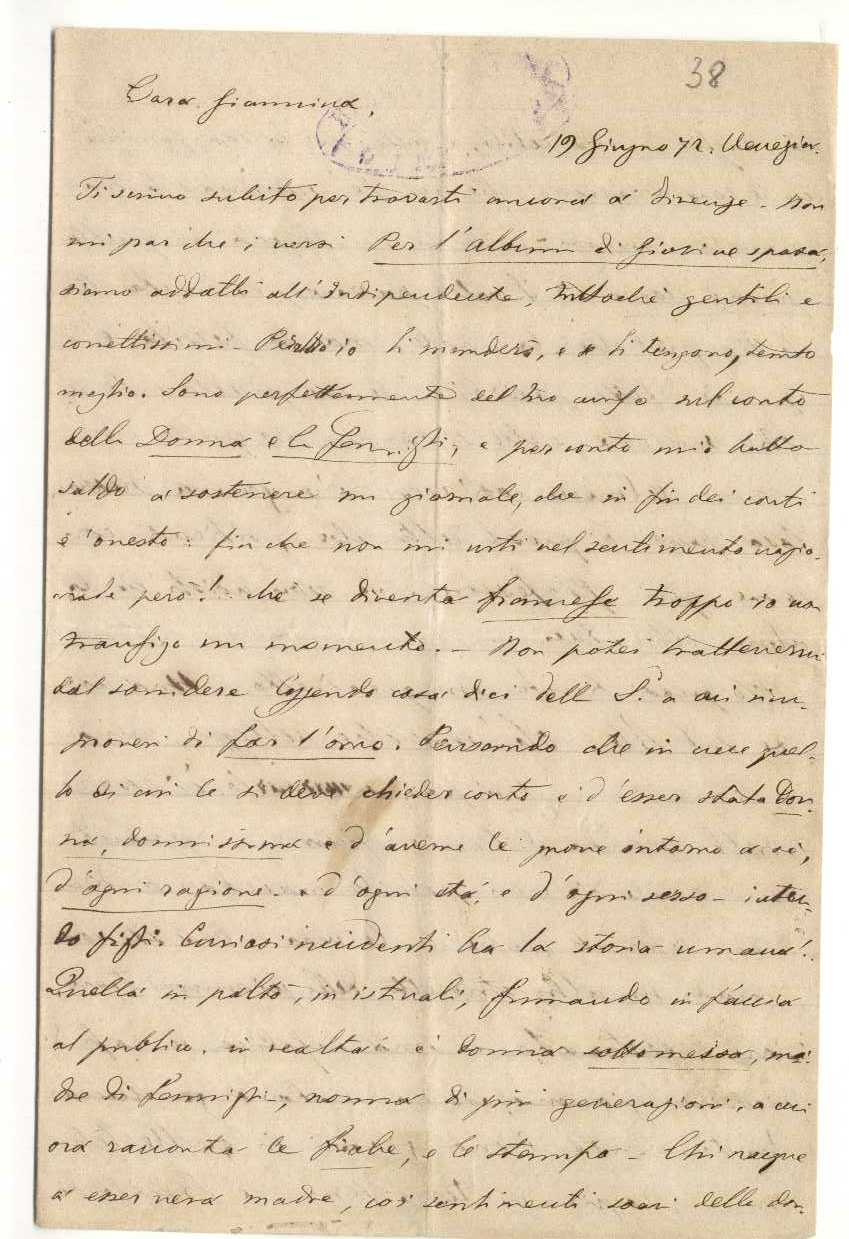 38
Cara Giannina,
19 Giugno 72. Venezia.
Ti scrivo subito per trovarti ancora a Firenze - Non
mi par che i versi Per l'album di giovine sposa,
siano addatti all'Indipendente, tuttochè gentili e
corettissimi - Peraltro io li manderò, e se li tengono, tanto
meglio. Sono perfettamente del tuo avviso sul conto
della Donna e la famiglia, e per conto mio
saldo a sostenere un giornale, che in fin dei conti
è onesto: fin che non mi urti nel sentimento nazio-
nale però! che se diventa francese troppo io non
transigo un momento. - Non potei trattenermi
dal sorridere leggendo cosa dici dell S.a a cui rim-
proveri di far l'omo. Pensando che in vece quel-
lo di cui le si deve chieder conto è d'esser stata Don-
na, donnissima e d'averne le prove intorno a sè,
d'ogni ragione. e d'ogni età, e d'ogni sesso - inten-
do figli. Curiosi incidenti ha la storia umana!.
Quella in paltò, in istivali, fumando in faccia
al publico. in realtà è donna sottomessa, ma-
dre di famiglia, nonna di più generazioni, a cui
ora racconta le fiabe, e le stampa - Chi nacque
a esser vera madre, coi sentimenti soavi della don-